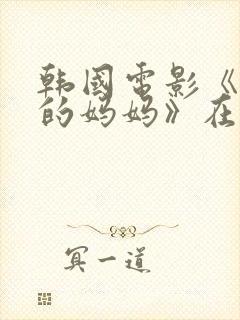 韩國电影《
的妈妈》在
冥一道